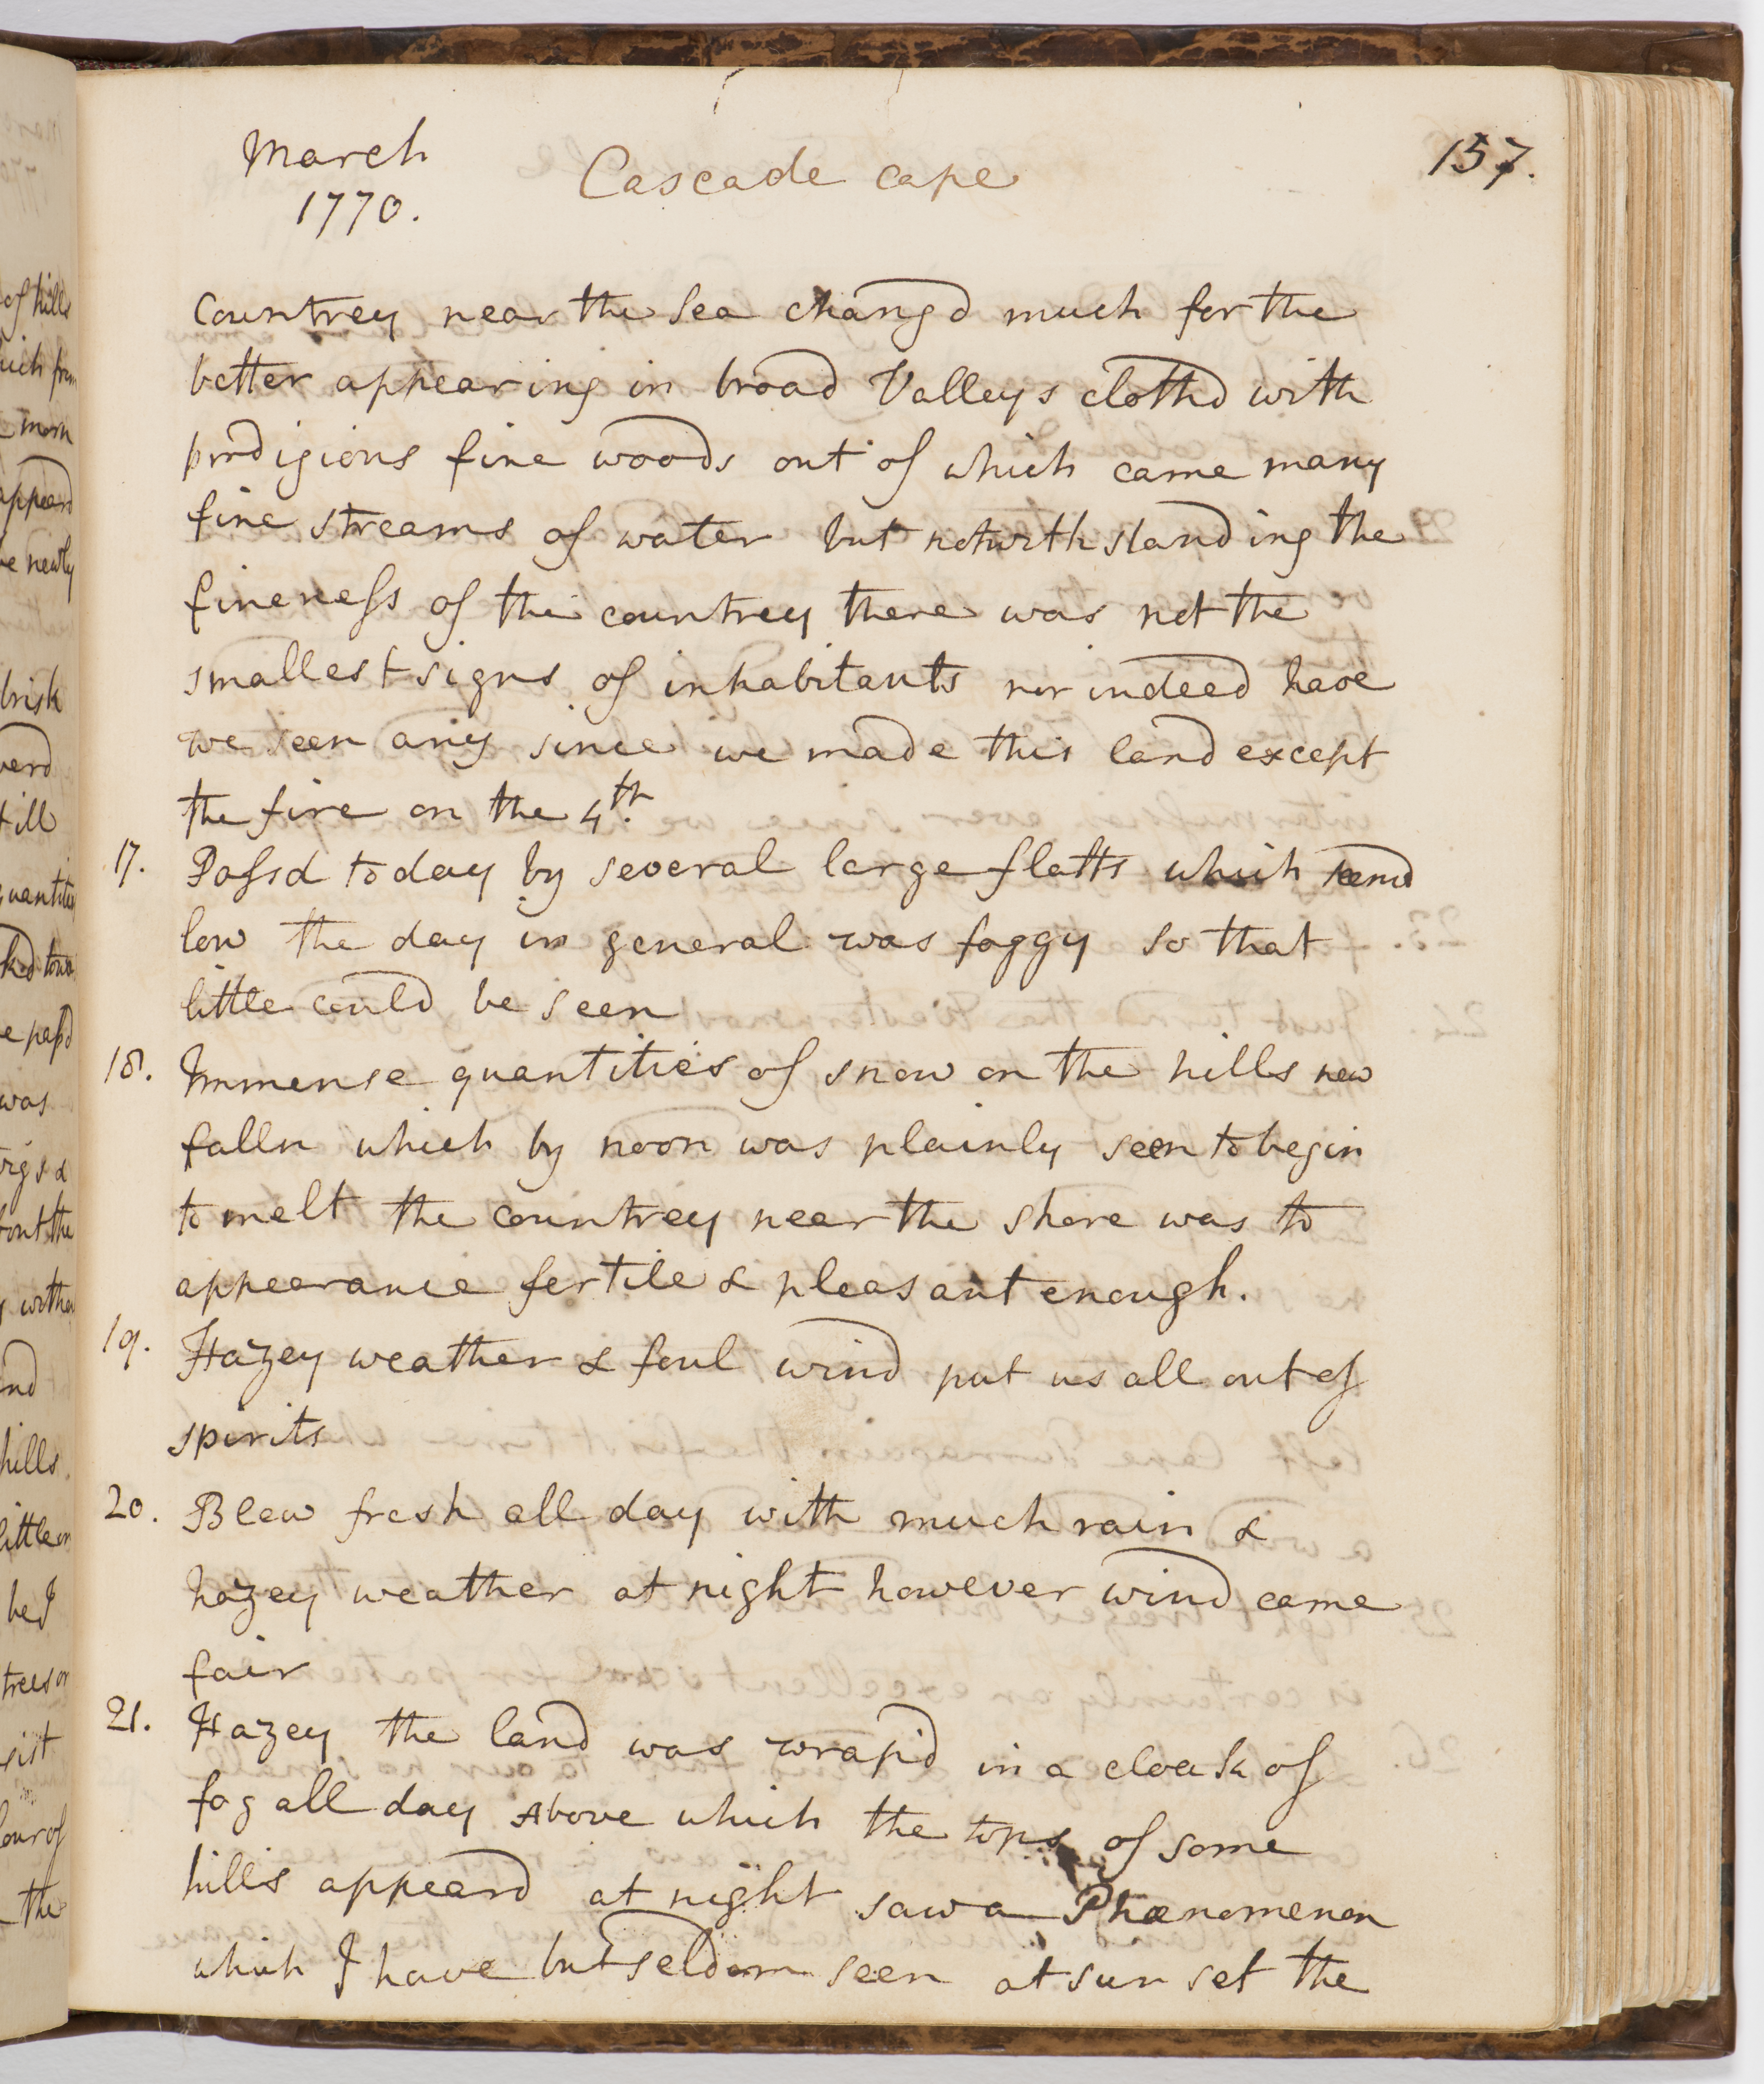 March
1770.
Cascade cape
157.
Countrey near the Sea changd much for the
better appearing in broad Valleys clothd with
prodigious fine woods out of which came many
fine streams of water but notwithstanding the
fineness of the countrey there was not the
smallest signs of inhabitants nor indeed have
we seen any since we made this land except
the fire on the 4th.
17. Passd today by several large flatts which seemd
low the day in general was foggy so that
little could be seen
18. Immense quantities of snow on the hills new
falln which by noon was plainly seen to begin
to melt the countrey near the shore was to
appearance fertile & pleasant enough.
19. Hazey weather & foul wind put us all out of
spirits
20. Blew fresh all day with much rain &
hazey weather at night however wind came
fair
21. Hazey the land was wrapd in a cloak of
fog all day Above which the tops of some
hills appeard at night saw a Phænomenon
which I have but seldom seen at sun set the
of hills
appeard
newly
brisk
till
was
hills
trees or
the